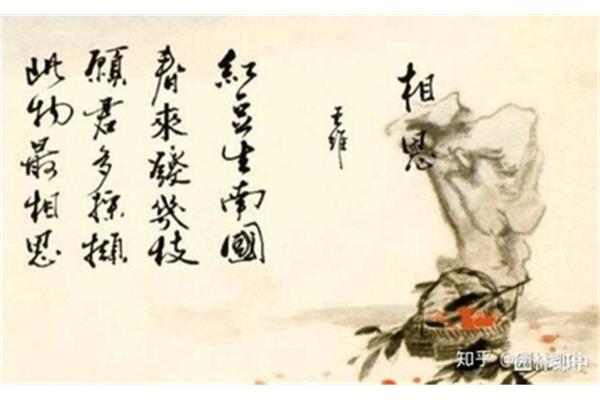 相思
王維
紅豆生南國
春來發幾枝
願君多採擷
此物最相思
知乎 @园林郎中